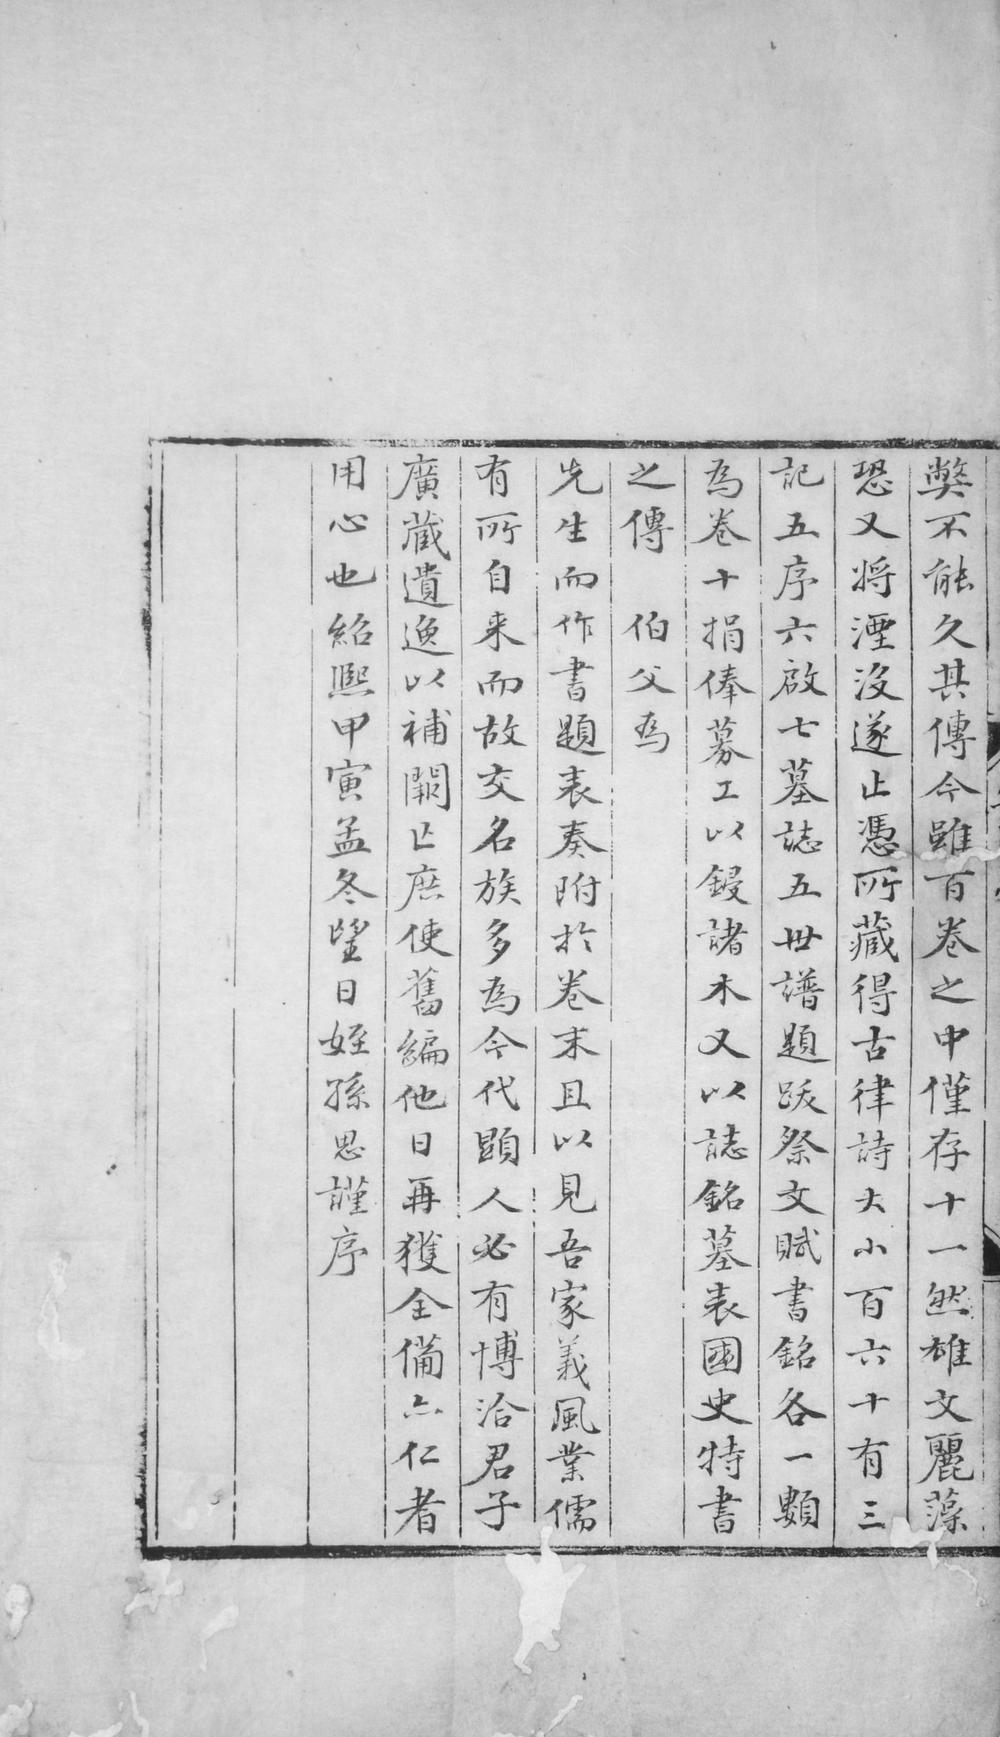 弊不能久其傳今雖百卷之中僅存十一然雄文麗藻
恐又將湮沒遂止憑所藏得古律詩大小百六十有三
記五序六啟七墓誌五世譜題跋祭文賦書銘各一顆
為卷十捐俸募工以鋟諸木又以誌銘墓表國史特書
之傳　伯父為
先生而作書題表奏附於卷末且以見吾家義風業儒
有所自来而故交名族多為今代顕人必有博洽君子
廣蔵遺逸以補闕亡庶使舊編他日再獲全備亦仁者
用心也紹熙甲寅孟冬望日姪孫思謹序